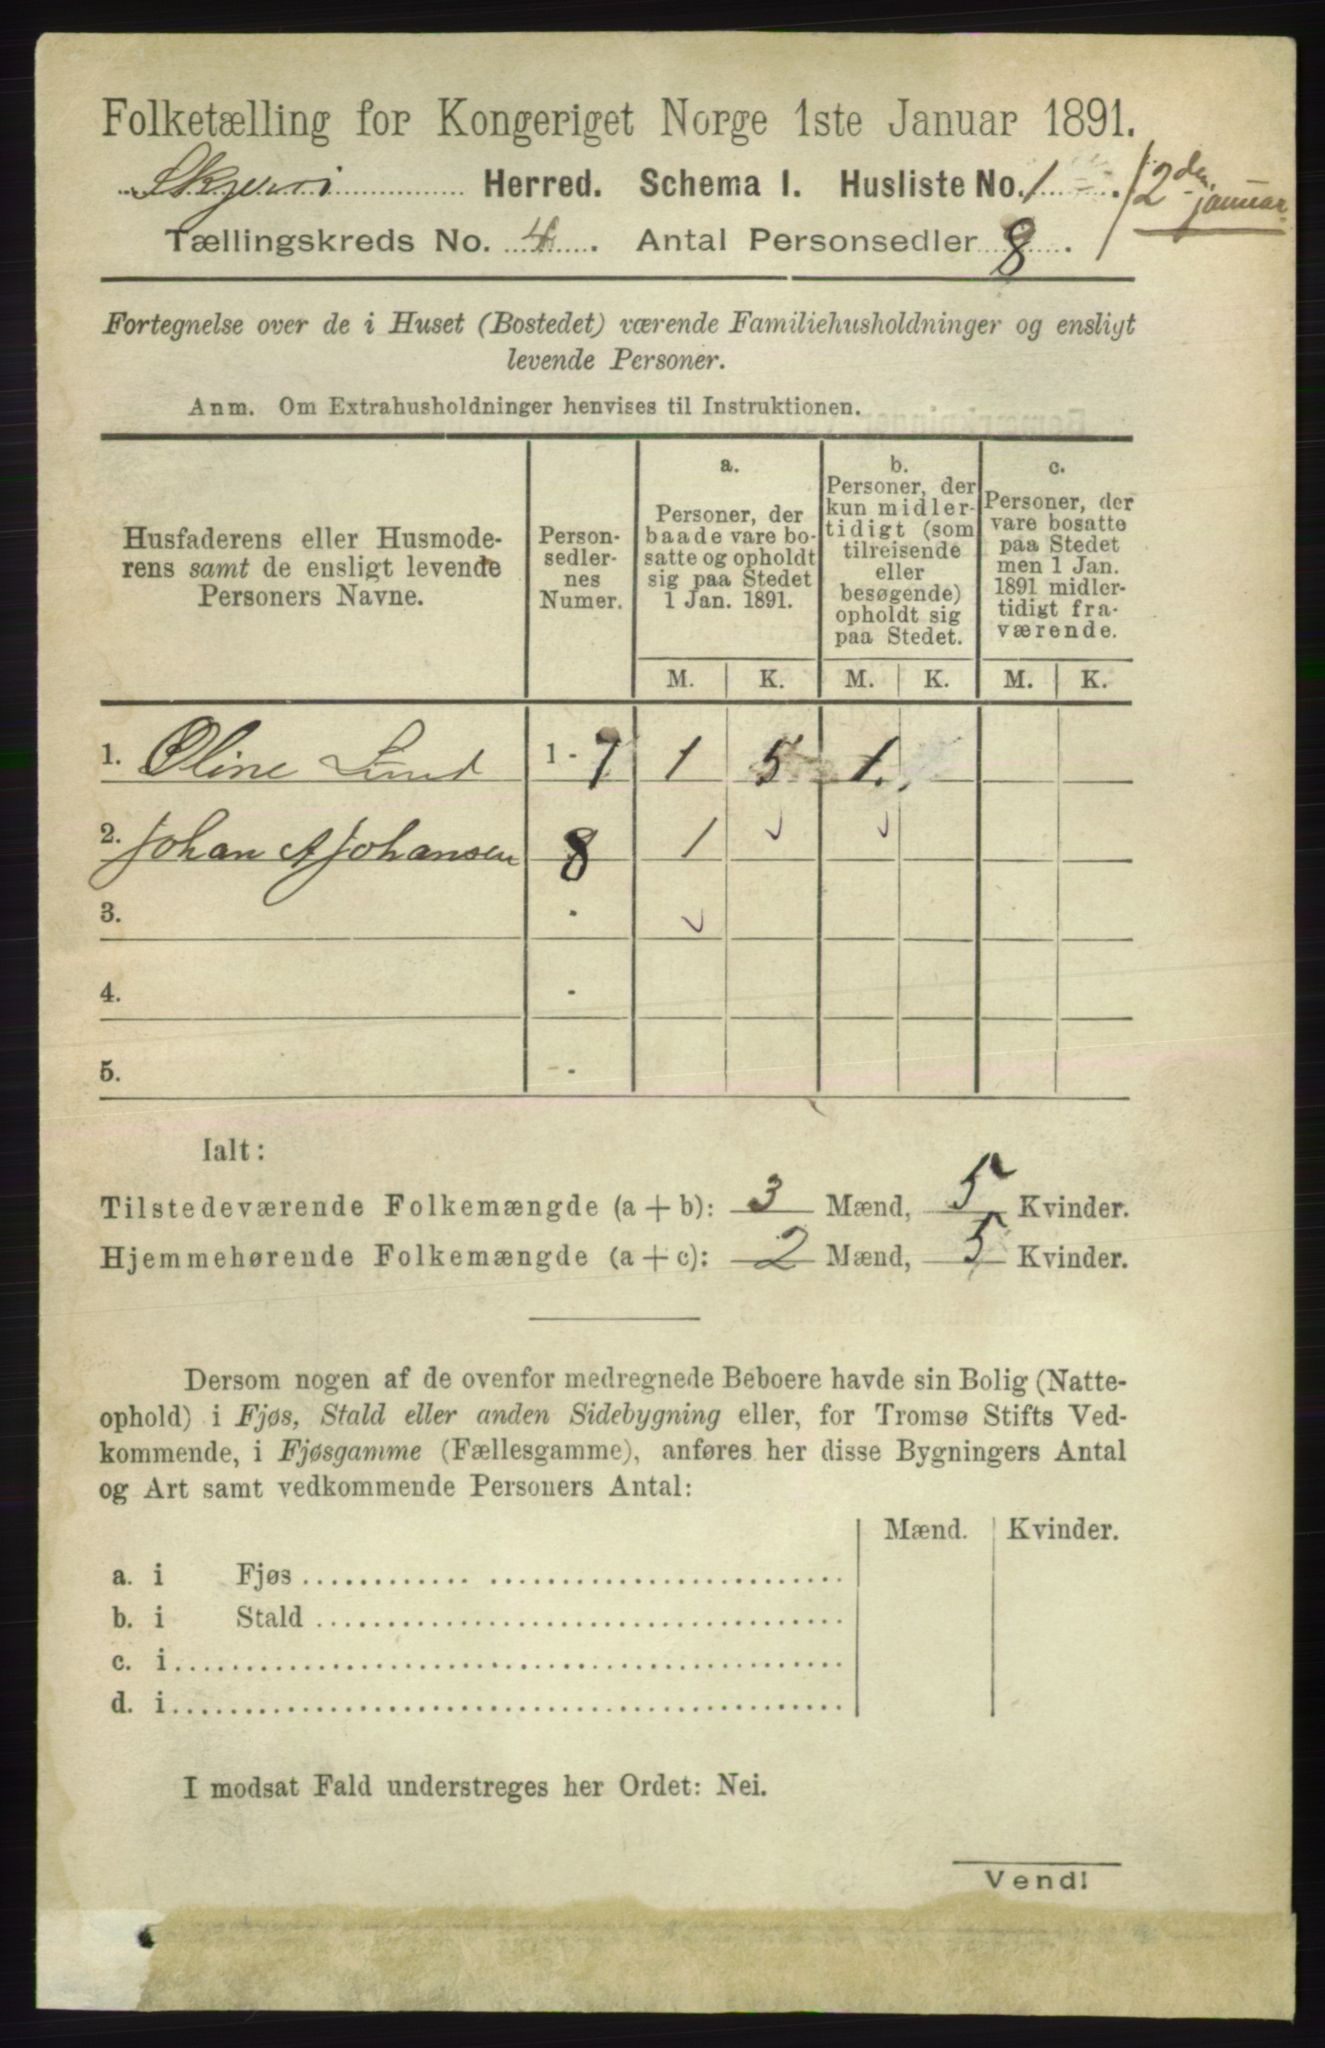 Folketælling for Kongeriget Norge 1ste Januar 1891.
Skjervø Herred. Schema I. Husliste No. 1 2den januar
Tællingskreds No. 4. Antal Personsedler 8.
Fortegnelse over de i Huset (Bostedet) værende Familiehusholdninger og ensligt
levende Personer.
Anm. Om Extrahusholdninger henvises til Instruktionen.
Husfaderens eller Husmode-
rens samt de ensligt levende
Personers Navne.
Person-
sedler-
nes
Numer.
a.
Personer, der
baade vare bo-
satte og opholdt
sig paa Stedet
1 Jan. 1891.
b.
Personer, der
kun midler-
tidigt (som
tilreisende
eller
besøgende)
opholdt sig
paa Stedet.
c.
Personer, der
vare bosatte
paa Stedet
men 1 Jan.
1891 midler-
tidigt fra-
værende.
M. K. M. K. M. K.
1. Oline Lund 1-7 1 5 1.
2. Johan A Johansen 8 1
3. -
4. -
5. -
Ialt:
Tilstedeværende Folkemængde (a + b): 3 Mænd, 5 Kvinder.
Hjemmehørende Folkemængde (a + c): 2 Mænd, 5 Kvinder.
Dersom nogen af de ovenfor medregnede Beboere havde sin Bolig (Natte-
ophold) i Fjøs, Stald eller anden Sidebygning eller, for Tromsø Stifts Ved-
kommende, i Fjøsgamme (Fællesgamme), anføres her disse Bygningers Antal
og Art samt vedkommende Personers Antal:
Mænd. Kvinder.
a. i Fjøs
b. i Stald
c. i
d. i
I modsat Fald understreges her Ordet: Nei.
Vend!